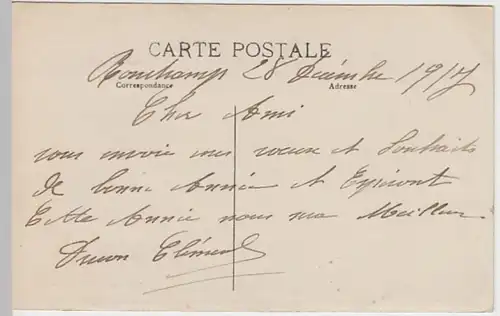 CARTE POSTALE
Ronchamp 28 Décembre 1917
Correspondance Adresse
Cher Ami
vous envoie mes vœux et Souhaits
de bonne Année et
Cette Année nous Meilleur
Clément